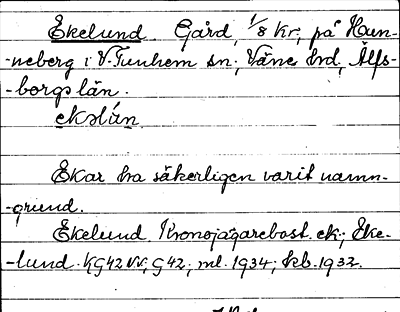 Ekelund. Gård, 1/8 kr, på Hun-
-neberg i V. Tunhem sn; Väne hd, Älfs-
-borgs län.
ekəlún.
Ekar ha säkerligen varit namn-
-grund.
Ekelund Kronojägarebost. ek.; Eke-
-lund. KG42 NV; G42; ml. 1934; kb. 1932.